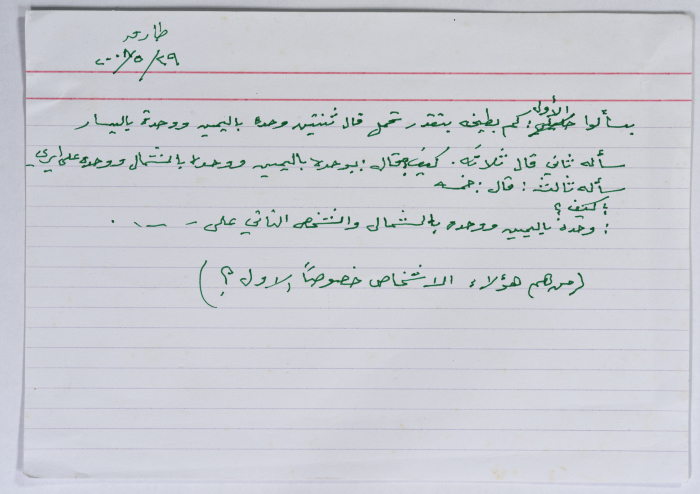 طارق
٢٠٠٨/٥/٢٩
بسألوا الأول: كم بطيخه بتقدر تحمل قال ثنتين وحده باليمين ووحدة باليسار
سأله ثاني قال ثلاثه. كيف؟ فقال: بوحده باليمين ووحده بالشمال ووحده على ايري
سأله ثالث: قال: خمسه
: كيف؟
: وحدة باليمين ووحده بالشمال والشخص الثاني على - ... .
(من هم هؤلاء الاشخاص خصوصاً الاول؟)